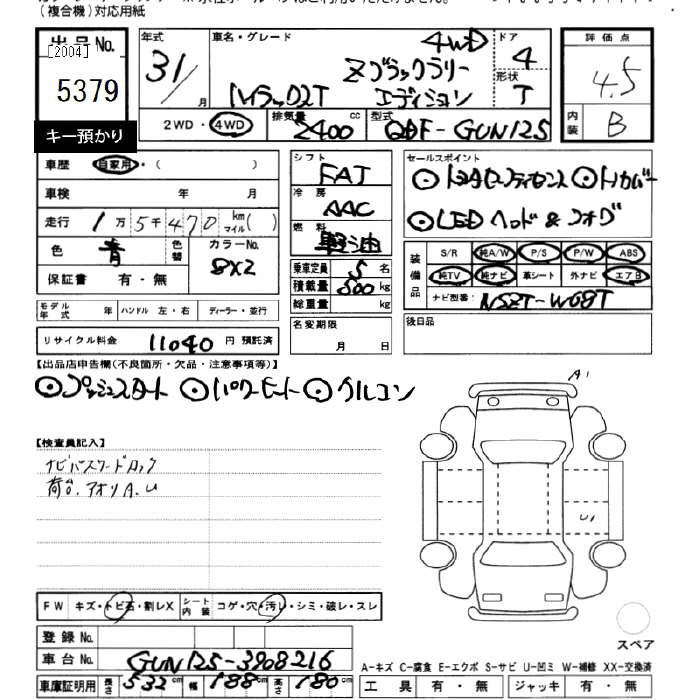 (複合機)対応用紙
出品No.
[2004]
5379
キー預かり
年式 31/ 月
車名・グレード 4WD
Zブラックラリー
ハイラックス2T エディション
ドア 4
形状 T
評価点 4.5
内装 B
2WD・4WD
排気量 2400 cc
型式 QDF-GUN125
車歴 自家用・( )
車検 年 月
走行 1万5千470 km マイル( )
色 青 色替 カラーNo. 8X2
保証書 有・無
シフト FAT
冷房 AAC
燃料 軽油
乗車定員 5名
積載量 500 kg
総重量 kg
セールスポイント
⊙トヨタセーフティセンス ⊙トノカバー
⊙LED ヘッド & フォグ
装備品 S/R 純A/W P/S P/W ABS
純TV 純ナビ 革シート 外ナビ エアB
ナビ型番: NSZT-W68T
モデル年式 年 ハンドル 左・右 ディーラー・並行
名変期限 月 日
後日品
リサイクル料金 11040 円 預託済
【出品店申告欄(不良箇所・欠品・注意事項等)】
⊙プッシュスタート ⊙パワーヒート ⊙クルコン
【検査員記入】
ナビパスワードロック
荷台.アオリA.U
A1
U1
FW キズ・トビ石・割レX シート内装 コゲ・穴・汚レ・シミ・破レ・スレ
登録No.
車台No. GUN125-3908216
車庫証明用 長さ 532 cm 幅 188 cm 高さ 180 cm
スペア
A-キズ C-腐食 E-エクボ S-サビ U-凹ミ W-補修 XX-交換済
工具 有・無 ジャッキ 有・無